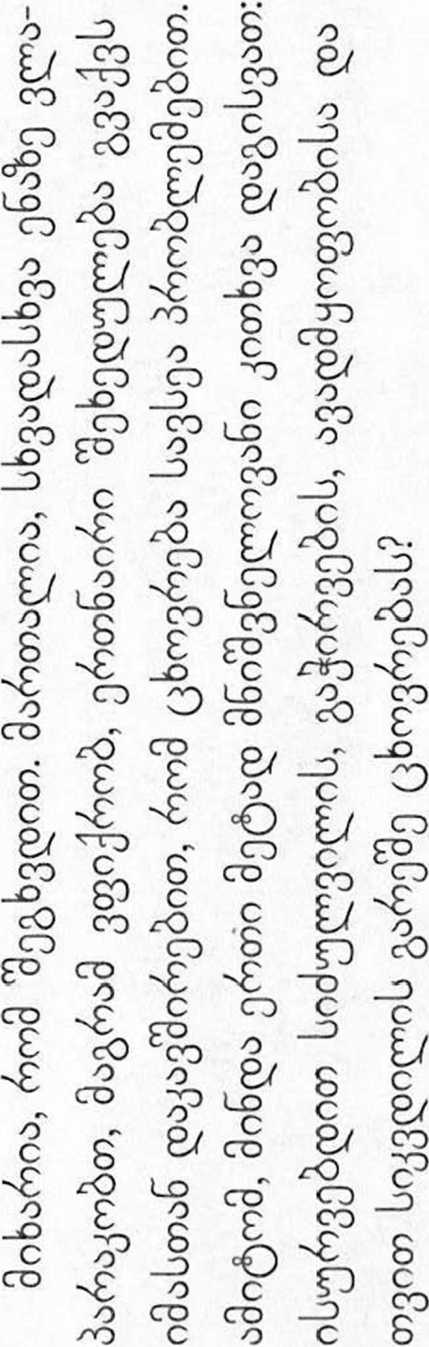 მიხარია, რომ შეგხვდით. მართალია, სხვადასხვა ენაზე ვლა-
პარაკობთ, მაგრამ ვფიქრობ, ერთნაირი შეხედულება გვაქვს
იმასთან დაკავშირებით, რომ ცხოვრება სავსეა პრობლემებით.
ამიტომ, მინდა ერთი მეტად მნიშვნელოვანი კითხვა დაგისვათ:
ისურვებდით სიძულვილის, გაჭირვების, ავადმყოფობისა და
თვით სიკვდილის გარეშე ცხოვრებას?